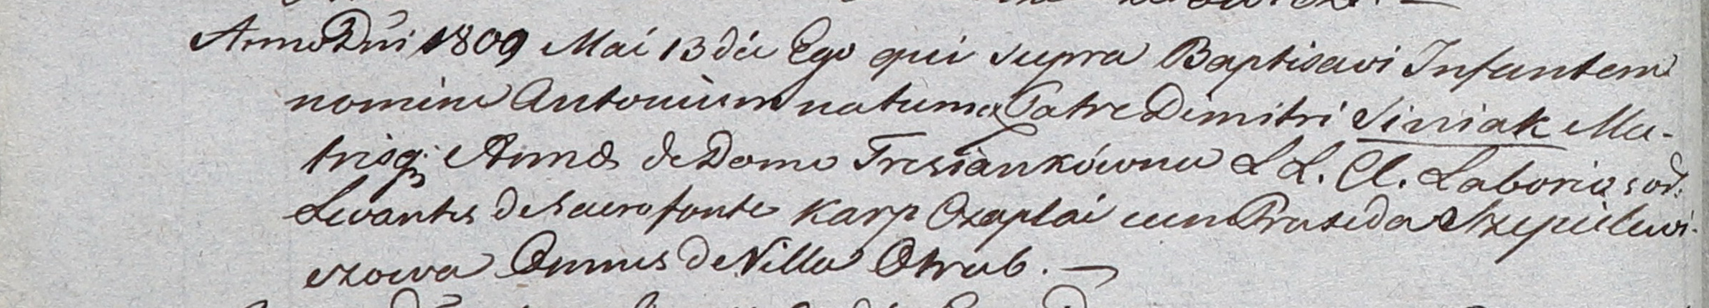 Anno Dni 1809 Mai 13 die Ego qui supra Baptisavi Infantem
nomine Antonium natum a Patre Dimitri Siniak Ma-
trisq; Annæ de Domo Tresiankówna L L. Cl. Laborios od:
Levantes de Sacro fonte Karp Czaplai cum Praseda Szepielewi-
czowa Omnes de Villa Otrub. —